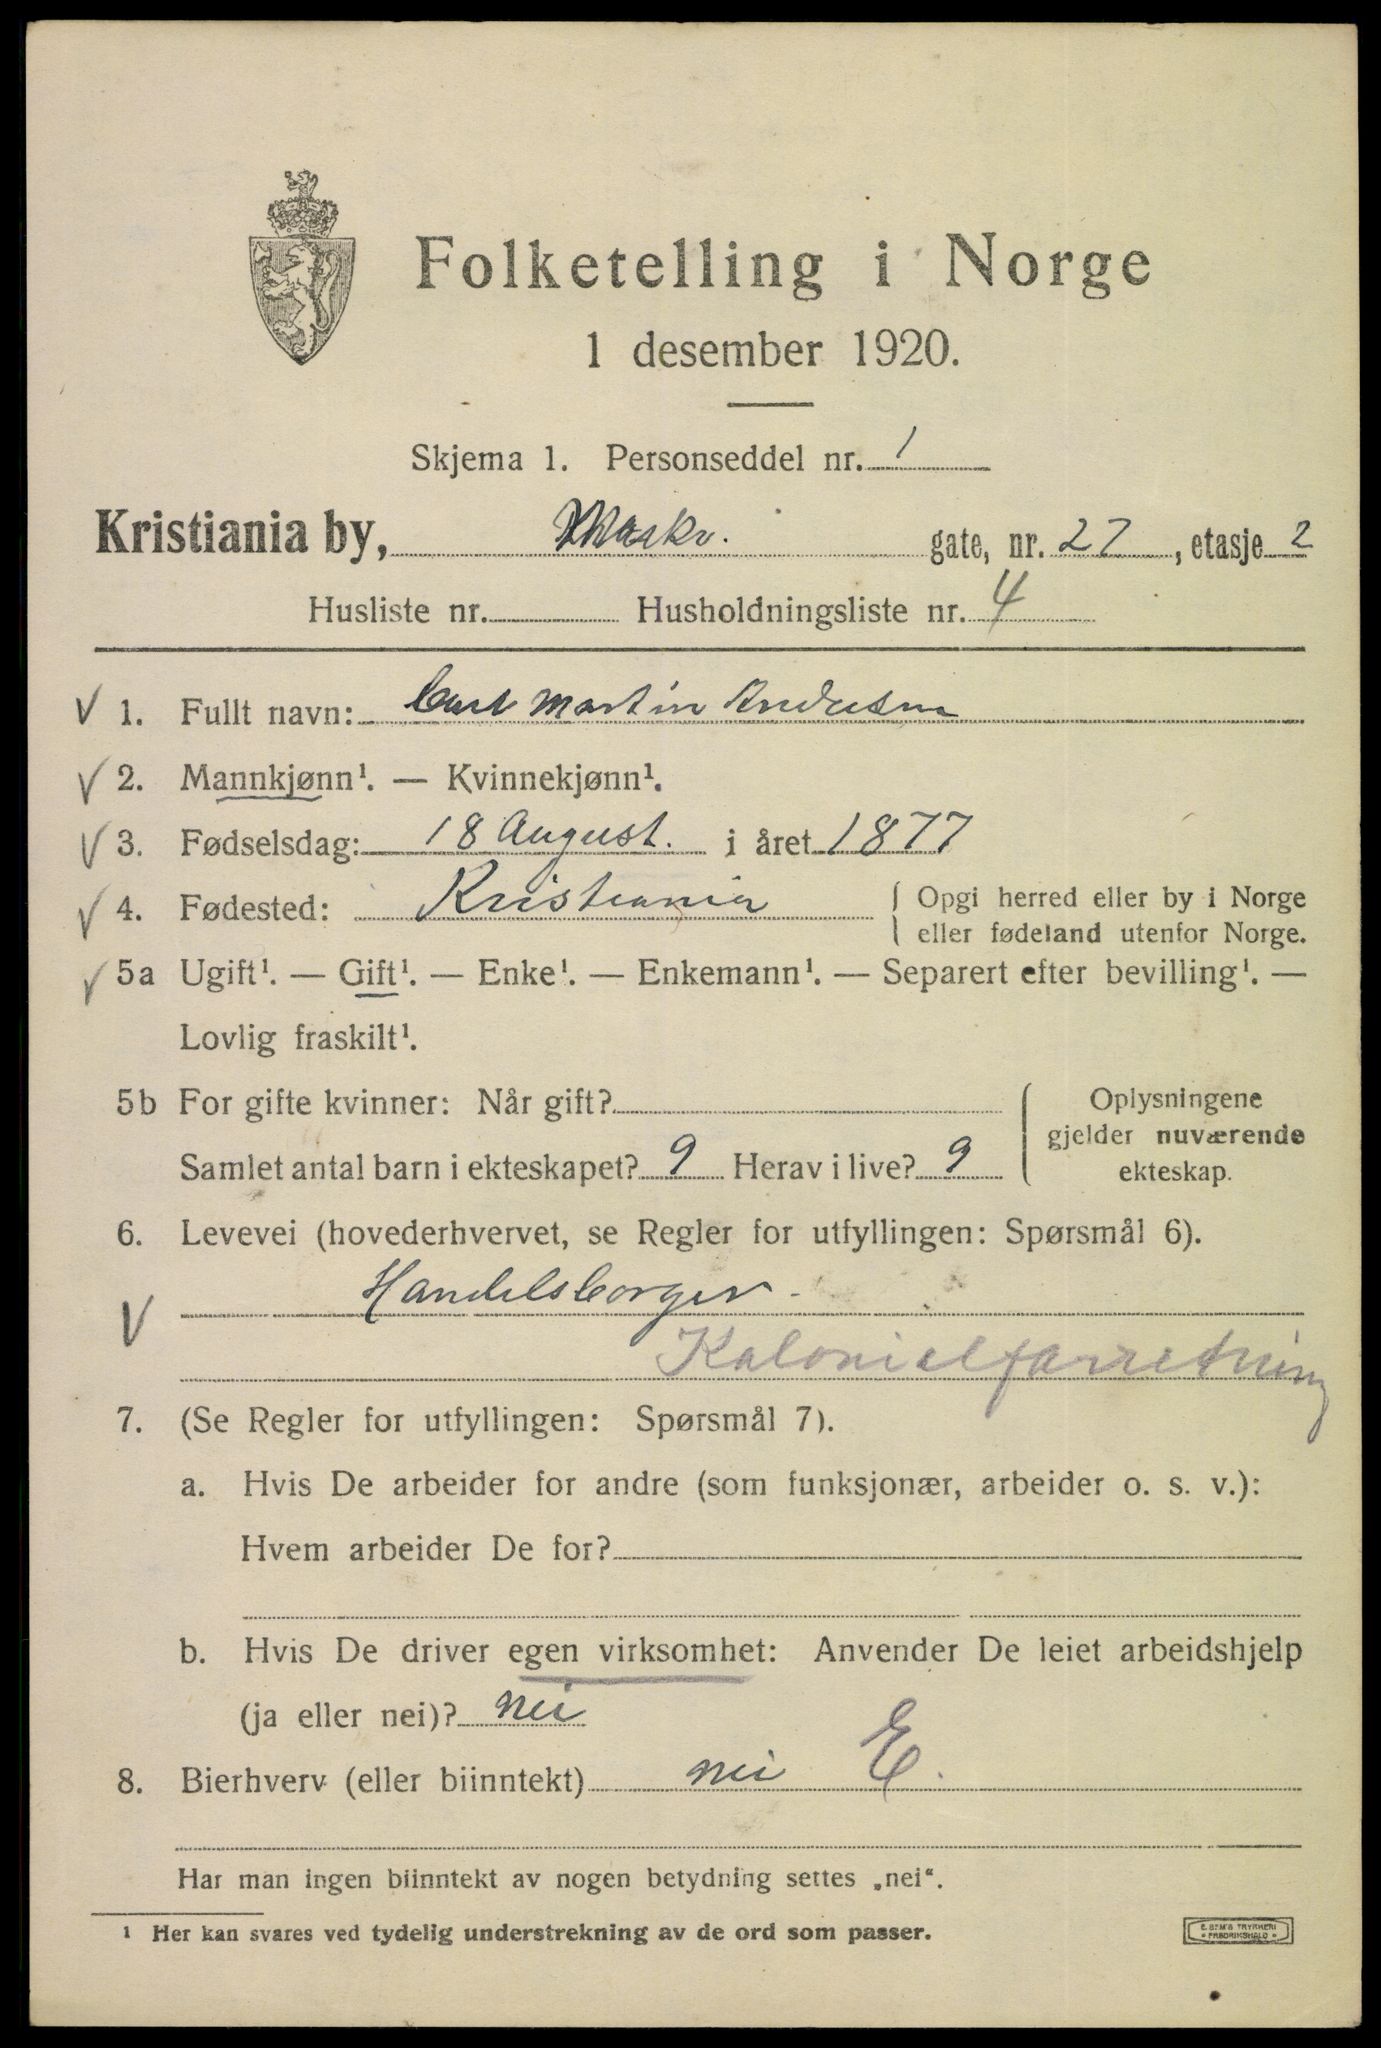 Folketelling i Norge
1 desember 1920.
Skjema 1. Personseddel nr. 1
Kristiania by, Markv. gate, nr. 27, etasje 2
Husliste nr. Husholdningsliste nr. 4
V 1. Fullt navn: Carl Martin Andersen
V 2. Mannkjønn¹. — Kvinnekjønn¹.
V 3. Fødselsdag: 18 August. i året 1877
V 4. Fødested: Kristiania { Opgi herred eller by i Norge
eller fødeland utenfor Norge.
V 5a Ugift¹. — Gift¹. — Enke¹. — Enkemann¹. — Separert efter bevilling¹. —
Lovlig fraskilt¹.
5b For gifte kvinner: Når gift?
Samlet antal barn i ekteskapet? 9 Herav i live? 9
{ Oplysningene
gjelder nuværende
ekteskap.
6. Levevei (hovederhvervet, se Regler for utfyllingen: Spørsmål 6).
V Handelsborger.
Kolonialforretning
7. (Se Regler for utfyllingen: Spørsmål 7).
a. Hvis De arbeider for andre (som funksjonær, arbeider o. s. v.):
Hvem arbeider De for?
b. Hvis De driver egen virksomhet: Anvender De leiet arbeidshjelp
(ja eller nei)? nei
8. Bierhverv (eller biinntekt) nei E.
Har man ingen biinntekt av nogen betydning settes „nei“.
¹ Her kan svares ved tydelig understrekning av de ord som passer.
E. SEM'S TRYKKERI
• FREDRIKSHALD •